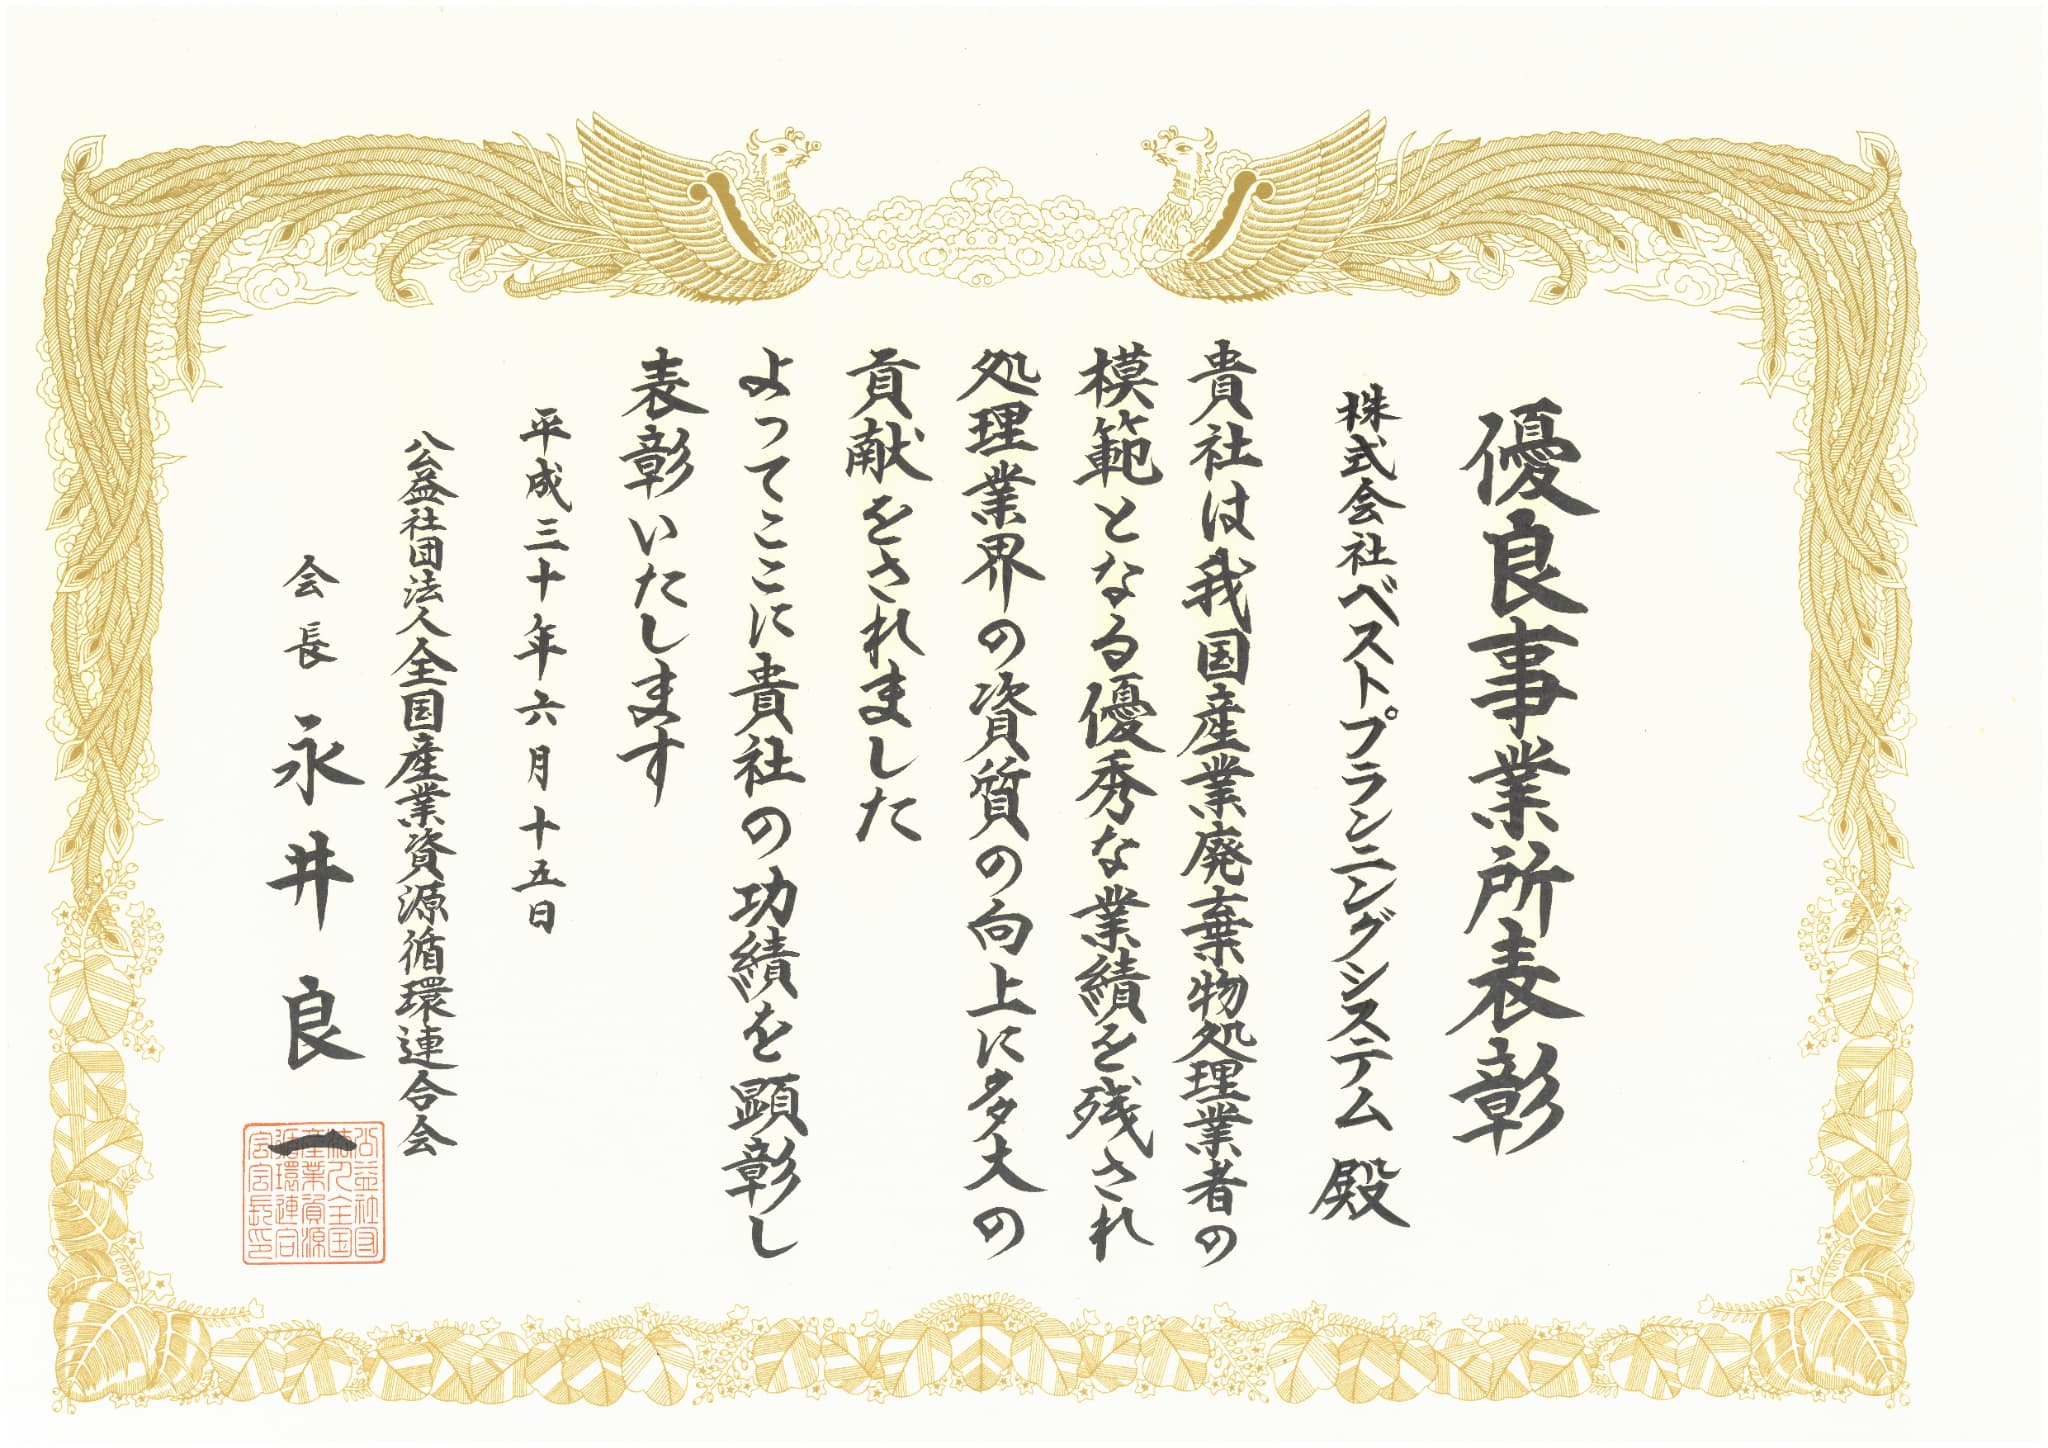 優良事業所表彰
株式会社ベストプランニングシステム 殿
貴社は我国産業廃棄物処理業者の
模範となる優秀な業績を残され
処理業界の資質の向上に多大の
貢献をされました
よってここに貴社の功績を顕彰し
表彰いたします
平成三十年六月十五日
公益社団法人全国産業資源循環連合会
会長 永井良一
公益社団
法人全国
産業資源
循環連合
会会長印